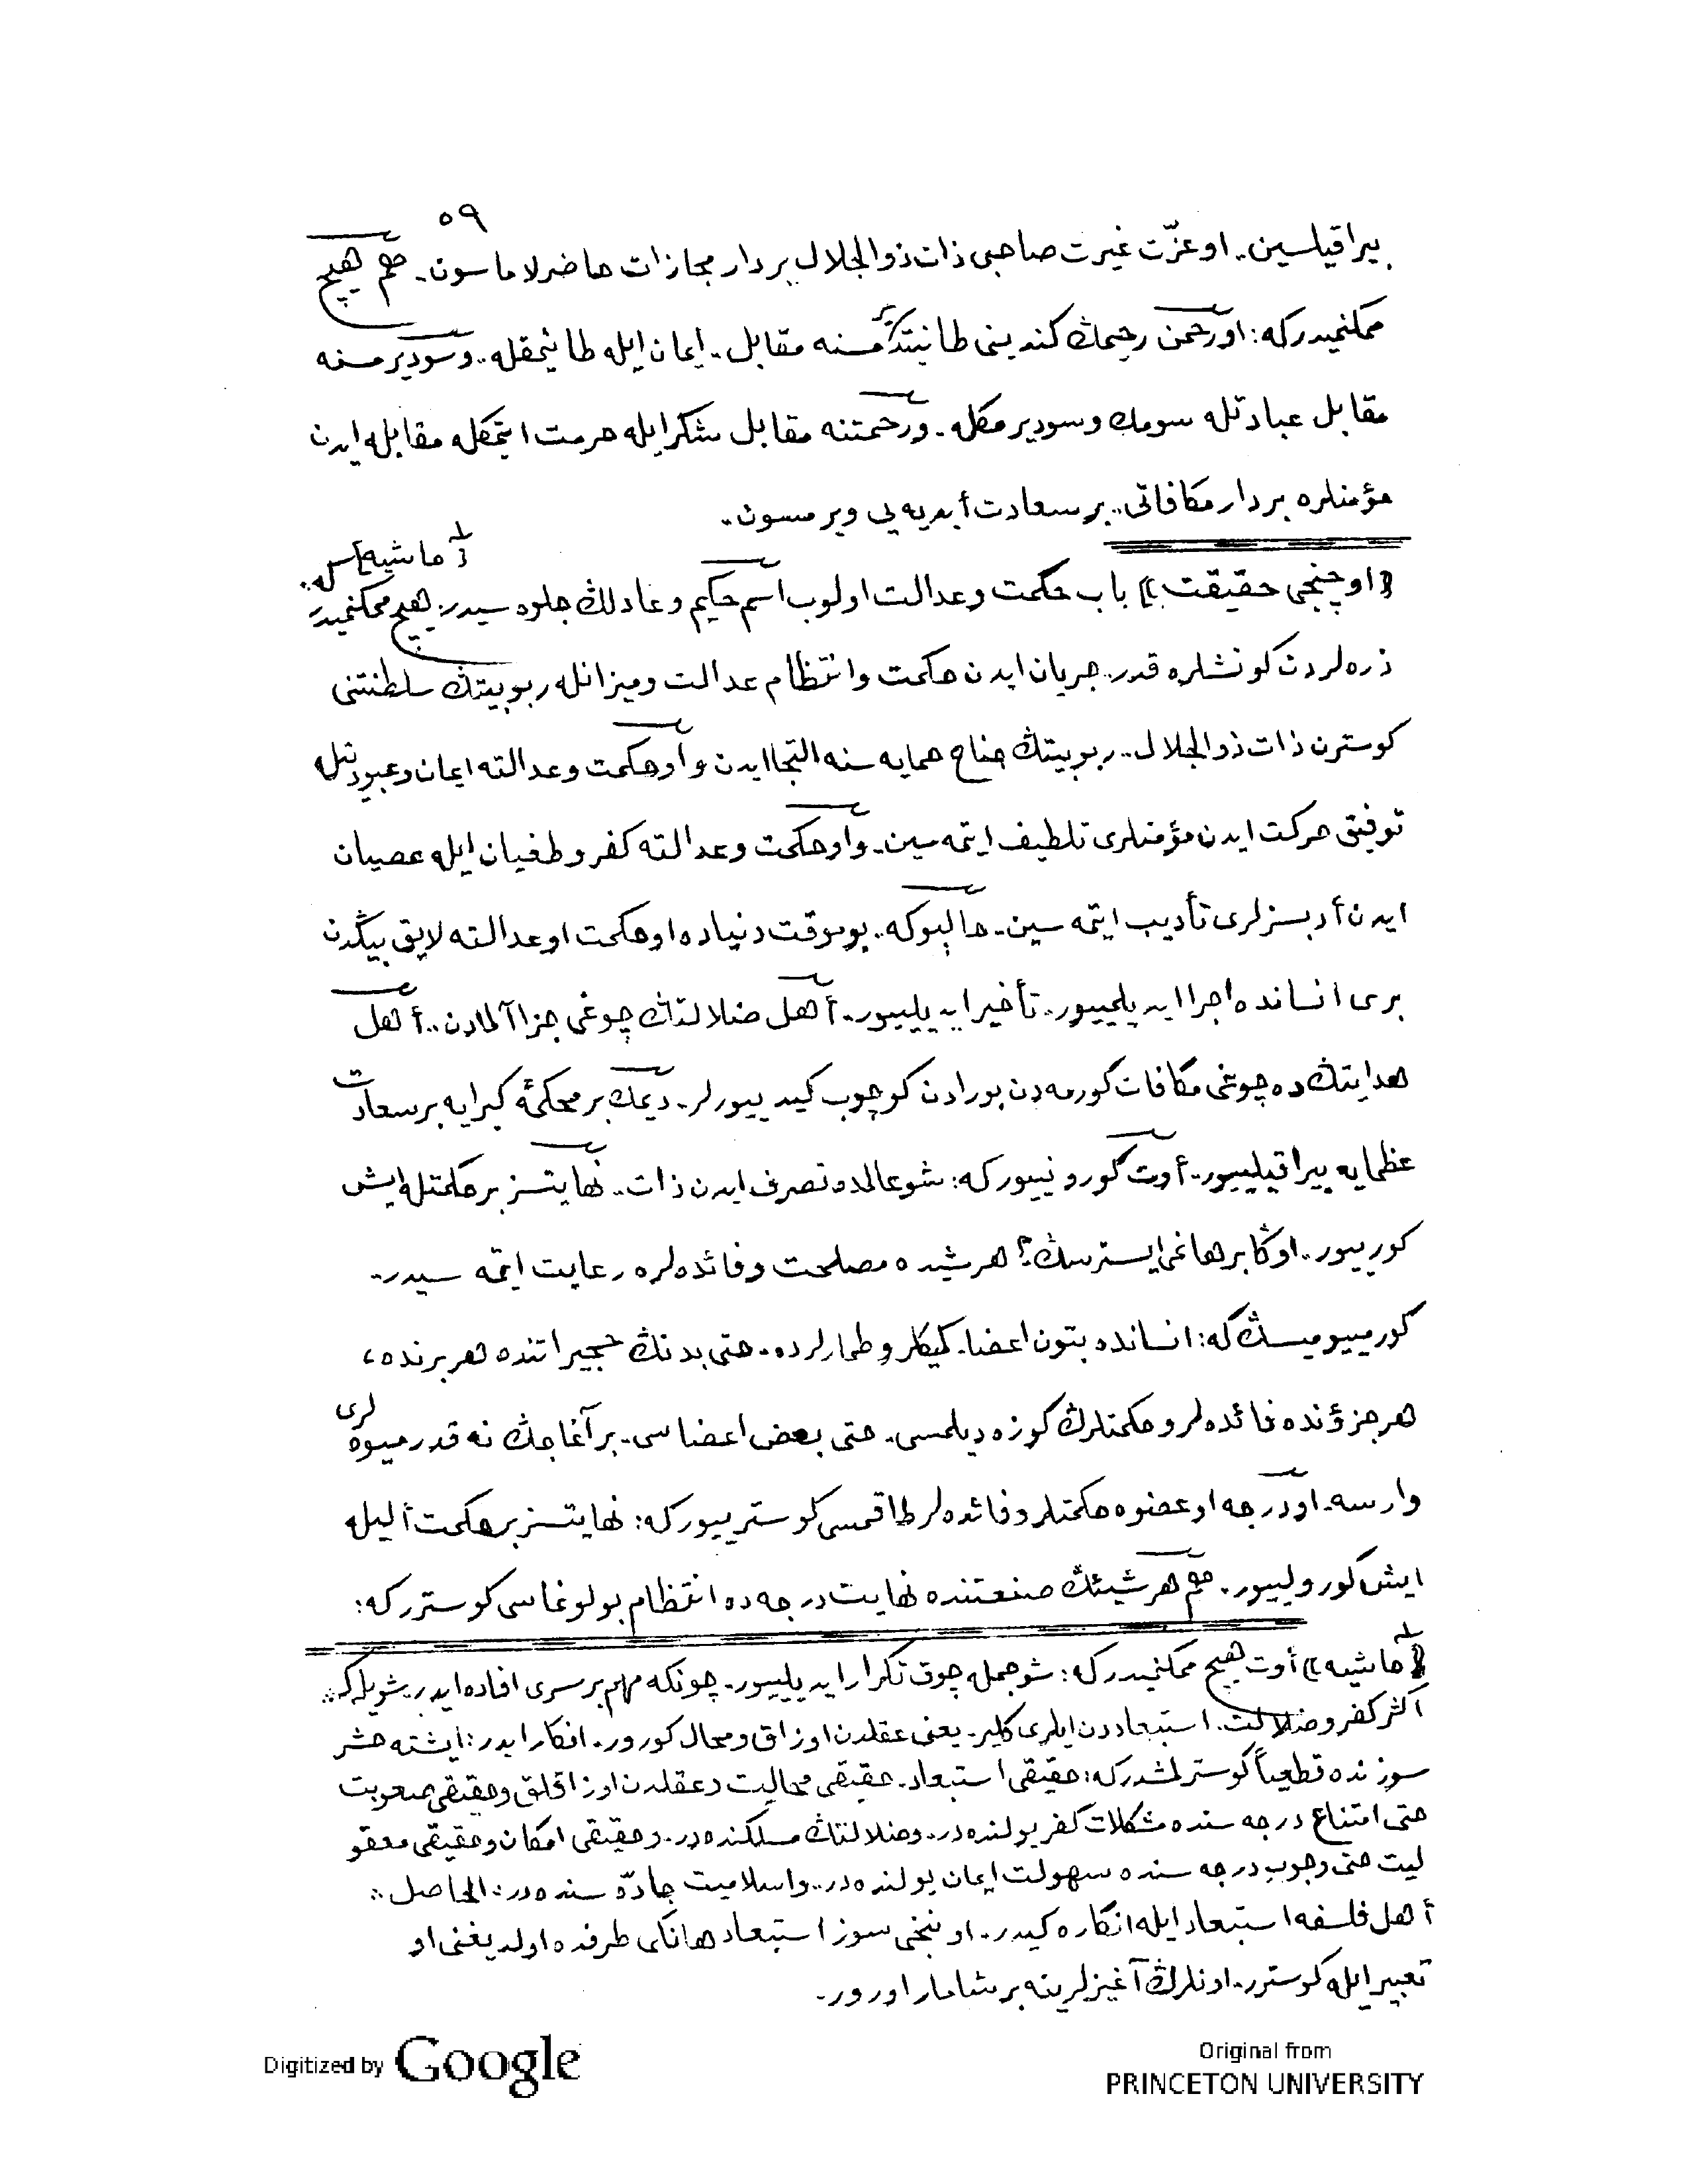 ٥٩
بيراقيلسين.. او عزّت غيرت صاحبى ذات ذوالجلال بر دار مجازات حاضرلاماسون.. هم هيچ
ممكنميدركه: او رحمن رحيمك كندينى طانيتديرمسنه مقابل.. ايمان ايله طانيمقله.. و سوديرمسنه
مقابل عبادتله سومك و سوديرمكله.. و رحمتنه مقابل شكر ايله حرمت ايتمكله مقابله ايدن
مؤمنلره بر دار مكافاتى.. بر سعادت أبديه يى ويرمسون..
﴿اوچنجى حقيقت﴾ باب حكمت و عدالت اولوب اسم حكيم و عادلڭ جلوه سيدر: هيچ ممكنميدر ﴿١ حاشيه﴾ كه:
ذره لردن كونشلره قدر.. جريان ايدن حكمت و انتظام عدالت و ميزانله ربوبيتڭ سلطنتنى
كوسترن ذات ذوالجلال.. ربوبيتڭ جناح حمايه سنه التجا ايدن و او حكمت و عدالته ايمان و عبوديتله
توفيق حركت ايدن مؤمنلرى تلطيف ايتمه سين.. و او حكمت و عدالته كفر و طغيان ايله عصيان
ايدن أدبسزلرى تأديب ايتمه سين.. حالبوكه.. بو موقت دنياده او حكمت او عدالته لايق بيڭدن
برى انسانده اجرا ايديلميور.. تأخير ايديلييور.. أهل ضلالتڭ چوغى جزا آلمادن.. أهل
هدايتڭ ده چوغى مكافات كورمه دن بورادن كوچوب كيدييورلر.. ديمك بر محكمۀ كبرايه بر سعادت
عظمايه بيراقيلييور.. أوت كورونييوركه: شو عالمده تصرف ايدن ذات.. نهايتسز بر حكمتله ايش
كورييور.. اوڭا برهانمى ايسترسڭ؟ هر شيده مصلحت و فائده لره رعايت ايتمه سيدر..
كورمييوميسڭ كه: انسانده بتون اعضا.. كيكلر و طمارلرده.. حتى بدنڭ حجيراتنده هر برنده،
هر جزؤنده فائده لر و حكمتلرڭ كوزه ديلمسى.. حتى بعض اعضاسى.. بر آغاجڭ نه قدر ميوه لرى
وارسه.. او درجه او عضوه حكمتلر و فائده لر طاقمسى كوسترييوركه: نهايتسز بر حكمت أليله
ايش كورولييور.. هم هر شيئڭ صنعتنده نهايت درجه ده انتظام بولونماسى كوستررکه:
﴿١ حاشيه﴾ أوت هيچ ممكنميدركه: شو جمله چوق تكرار ايديلييور.. چونكه مهم بر سرى افاده ايدر.. شويله كه:
اكثر كفر و ضلالت.. استبعاددن ايلرى كلير.. يعنى عقلدن اوزاق و محال كورور.. انكار ايدر: ايشته حشر
سوزنده قطعياً كوسترلمشدركه: حقيقى استبعاد.. حقيقى محاليت و عقلدن اوزاقلق و حقيقى صعوبت
حتى امتناع درجه سنده مشكلات كفر يولنده در.. و ضلالتڭ مسلكنده در.. و حقيقى امكان و حقيقى معقو
ليت حتى وجوب درجه سنده سهولت ايمان يولنده در.. و اسلاميت جادّه سنده در: الحاصل:
أهل فلسفه استبعاد ايله انكاره كيدر.. اونجى سوز استبعاد هانكى طرفده اولديغنى او
تعبير ايله كوسترر.. اونلرڭ آغيزلرينه بر شامار اورور..
Digitized by Google
Original from
PRINCETON UNIVERSITY